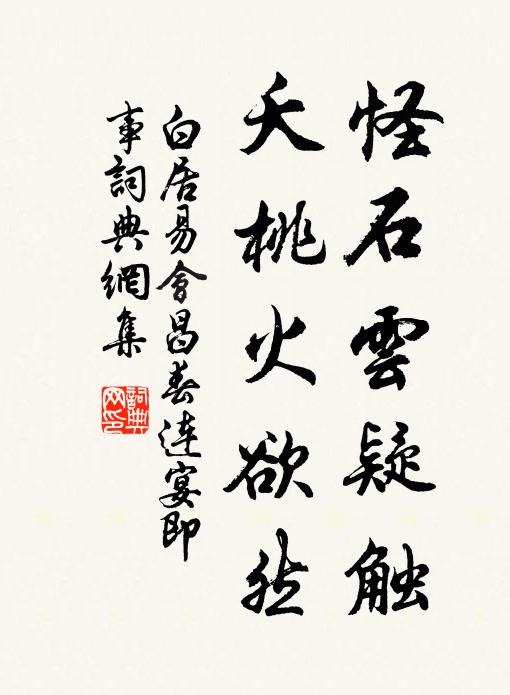 怪石雲疑触
夭桃火欲然
白居易會昌春连宴即
事詞典網集
詞典
网印